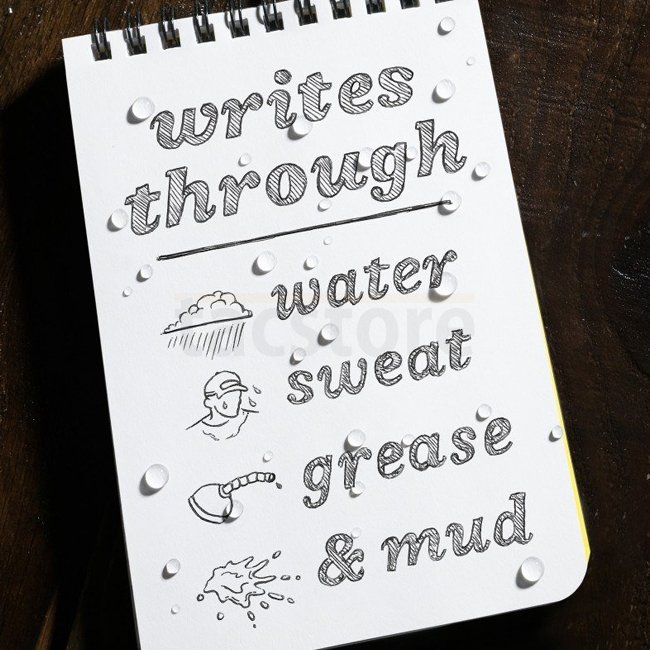 writes
through
water
tacstore
sweat
grease
& mud